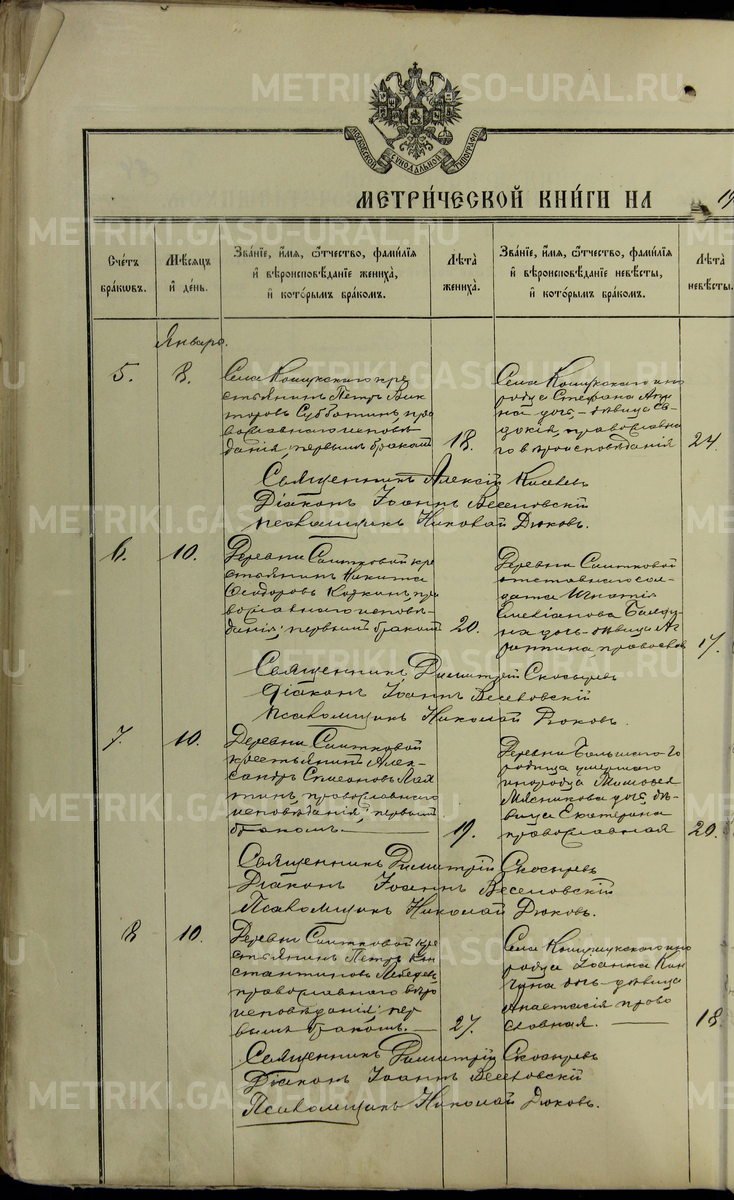 МОСКОВСКОЙ СѴНОДАЛЬНОЙ ТИПОГРАФІИ
МЕТРИ́ЧЕСКОЙ КНИ́ГИ НА 19
Сче́тъ бра́кωвъ.
Мѣ́сяцъ и҆ де́нь.
Зва́нїе, и҆́мя, ѻ҆́тчество, фами́лїя
и҆ вѣроисповѣ́данїе жениха̀,
и҆ кото́рымъ бра́комъ.
Лѣ́та жениха̀.
Зва́нїе, и҆́мя, ѻ҆́тчество, фами́лїя
и҆ вѣроисповѣ́данїе невѣ́сты,
и҆ кото́рымъ бра́комъ.
Лѣ́та невѣ́сты.
Январь.
5.
8.
Села Кошукскаго кре
стьянинъ Петръ Вик
торовъ Субботинъ, пра
вославнаго исповѣ
данія, первымъ бракомъ
18.
Села Кошукскаго ино
родца Стефана
дочь-дѣвица Ев-
докія, православна
го вѣроисповѣданія
24
Священникъ Алексій Киселевъ
Діаконъ Іоаннъ Веселовскій
Псаломщикъ Николай Дюковъ.
6.
10.
Деревни Саитковой кре
стьянинъ Никита
Ѳеодоровъ пра
вославнаго исповѣ-
данія, первымъ бракомъ
20.
Деревни Саитковой
отставного сол-
дата Игнатія
Емеліанова
дочь-дѣвица Аг
православ
17.
Священникъ Димитрій Скосыревъ
Діаконъ Іоаннъ Веселовскій
Псаломщикъ Николай Дюковъ.
7.
10.
Деревни Саитковой
крестьянинъ Алек-
сандръ Симеоновъ
православнаго
исповѣданія, первымъ
бракомъ.
19.
Деревни Большаго Го
родища умершаго
инородца
Мясникова дочь, дѣ-
вица Екатерина
православная
20.
Священникъ Димитрій Скосыревъ
Діаконъ Іоаннъ Веселовскій
Псаломщикъ Николай Дюковъ.
8
10.
Деревни Саитковой кре
стьянинъ Петръ Кон
стантиновъ Лебедевъ
православнаго вѣро
исповѣданія; пер
вымъ бракомъ.
27.
Села Кошукскаго ино
родца Іоанна
дочь-дѣвица
Анастасія право
славная.
18.
Священникъ Димитрій Скосыревъ
Діаконъ Іоаннъ Веселовскій
Псаломщикъ Николай Дюковъ.
METRIKI.GASO-URAL.RU